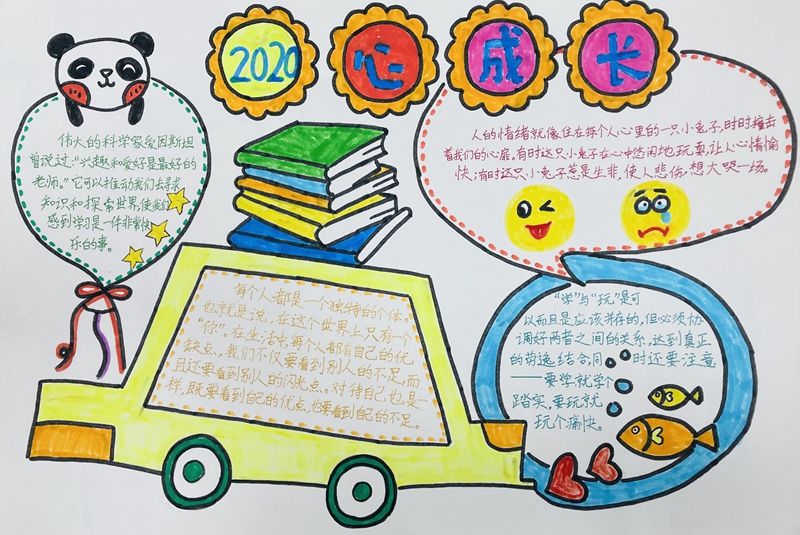 2020 心 成 长
伟大的科学家爱因斯坦
曾说过:“兴趣和爱好是最好的
老师。”它可以推动我们去寻求
知识和探索世界,使我们
感到学习是一件非常快
乐的事。
人的情绪就像住在每个人心里的一只小兔子,时时撞击
着我们的心扉。有时这只小兔子在心中悠闲地玩耍,让人心情愉
快;有时这只小兔子惹是生非,使人悲伤,想大哭一场。
每个人都是一个独特的个体,
也就是说,在这个世界上只有一个
“你”。在生活中,每个人都有自己的优
缺点,我们不仅要看到别人的不足,而
且还要看到别人的闪光点。对待自己也是一
样,既要看到自己的优点,也要看到自己的不足。
“学”与“玩”是可
以而且是应该并存的,但必须协
调好两者之间的关系,达到真正
的劳逸结合,同时还要注意
——要学,就学个
踏实,要玩,就
玩个痛快。